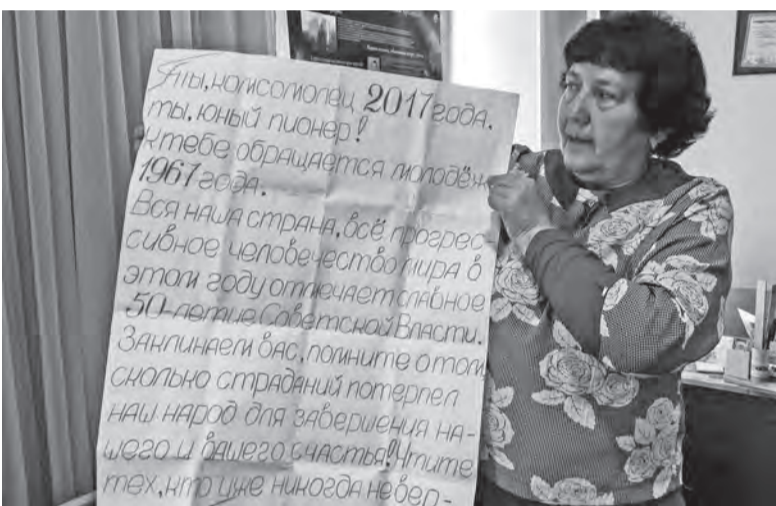 Яты, комсомолец 2017 года.
ты, юный пионер!
к тебе обращается молодёж
1967 года.
Вся наша страна, всё прогрес-
сивное человечество мира в
этом году отмечает славное
50-летие Советской Власти.
Заклинаем вас, помните о том
сколько страданий потерпел
наш народ для завершения на-
шего и вашего счастья! Чтите
тех, кто уже никогда не вер-